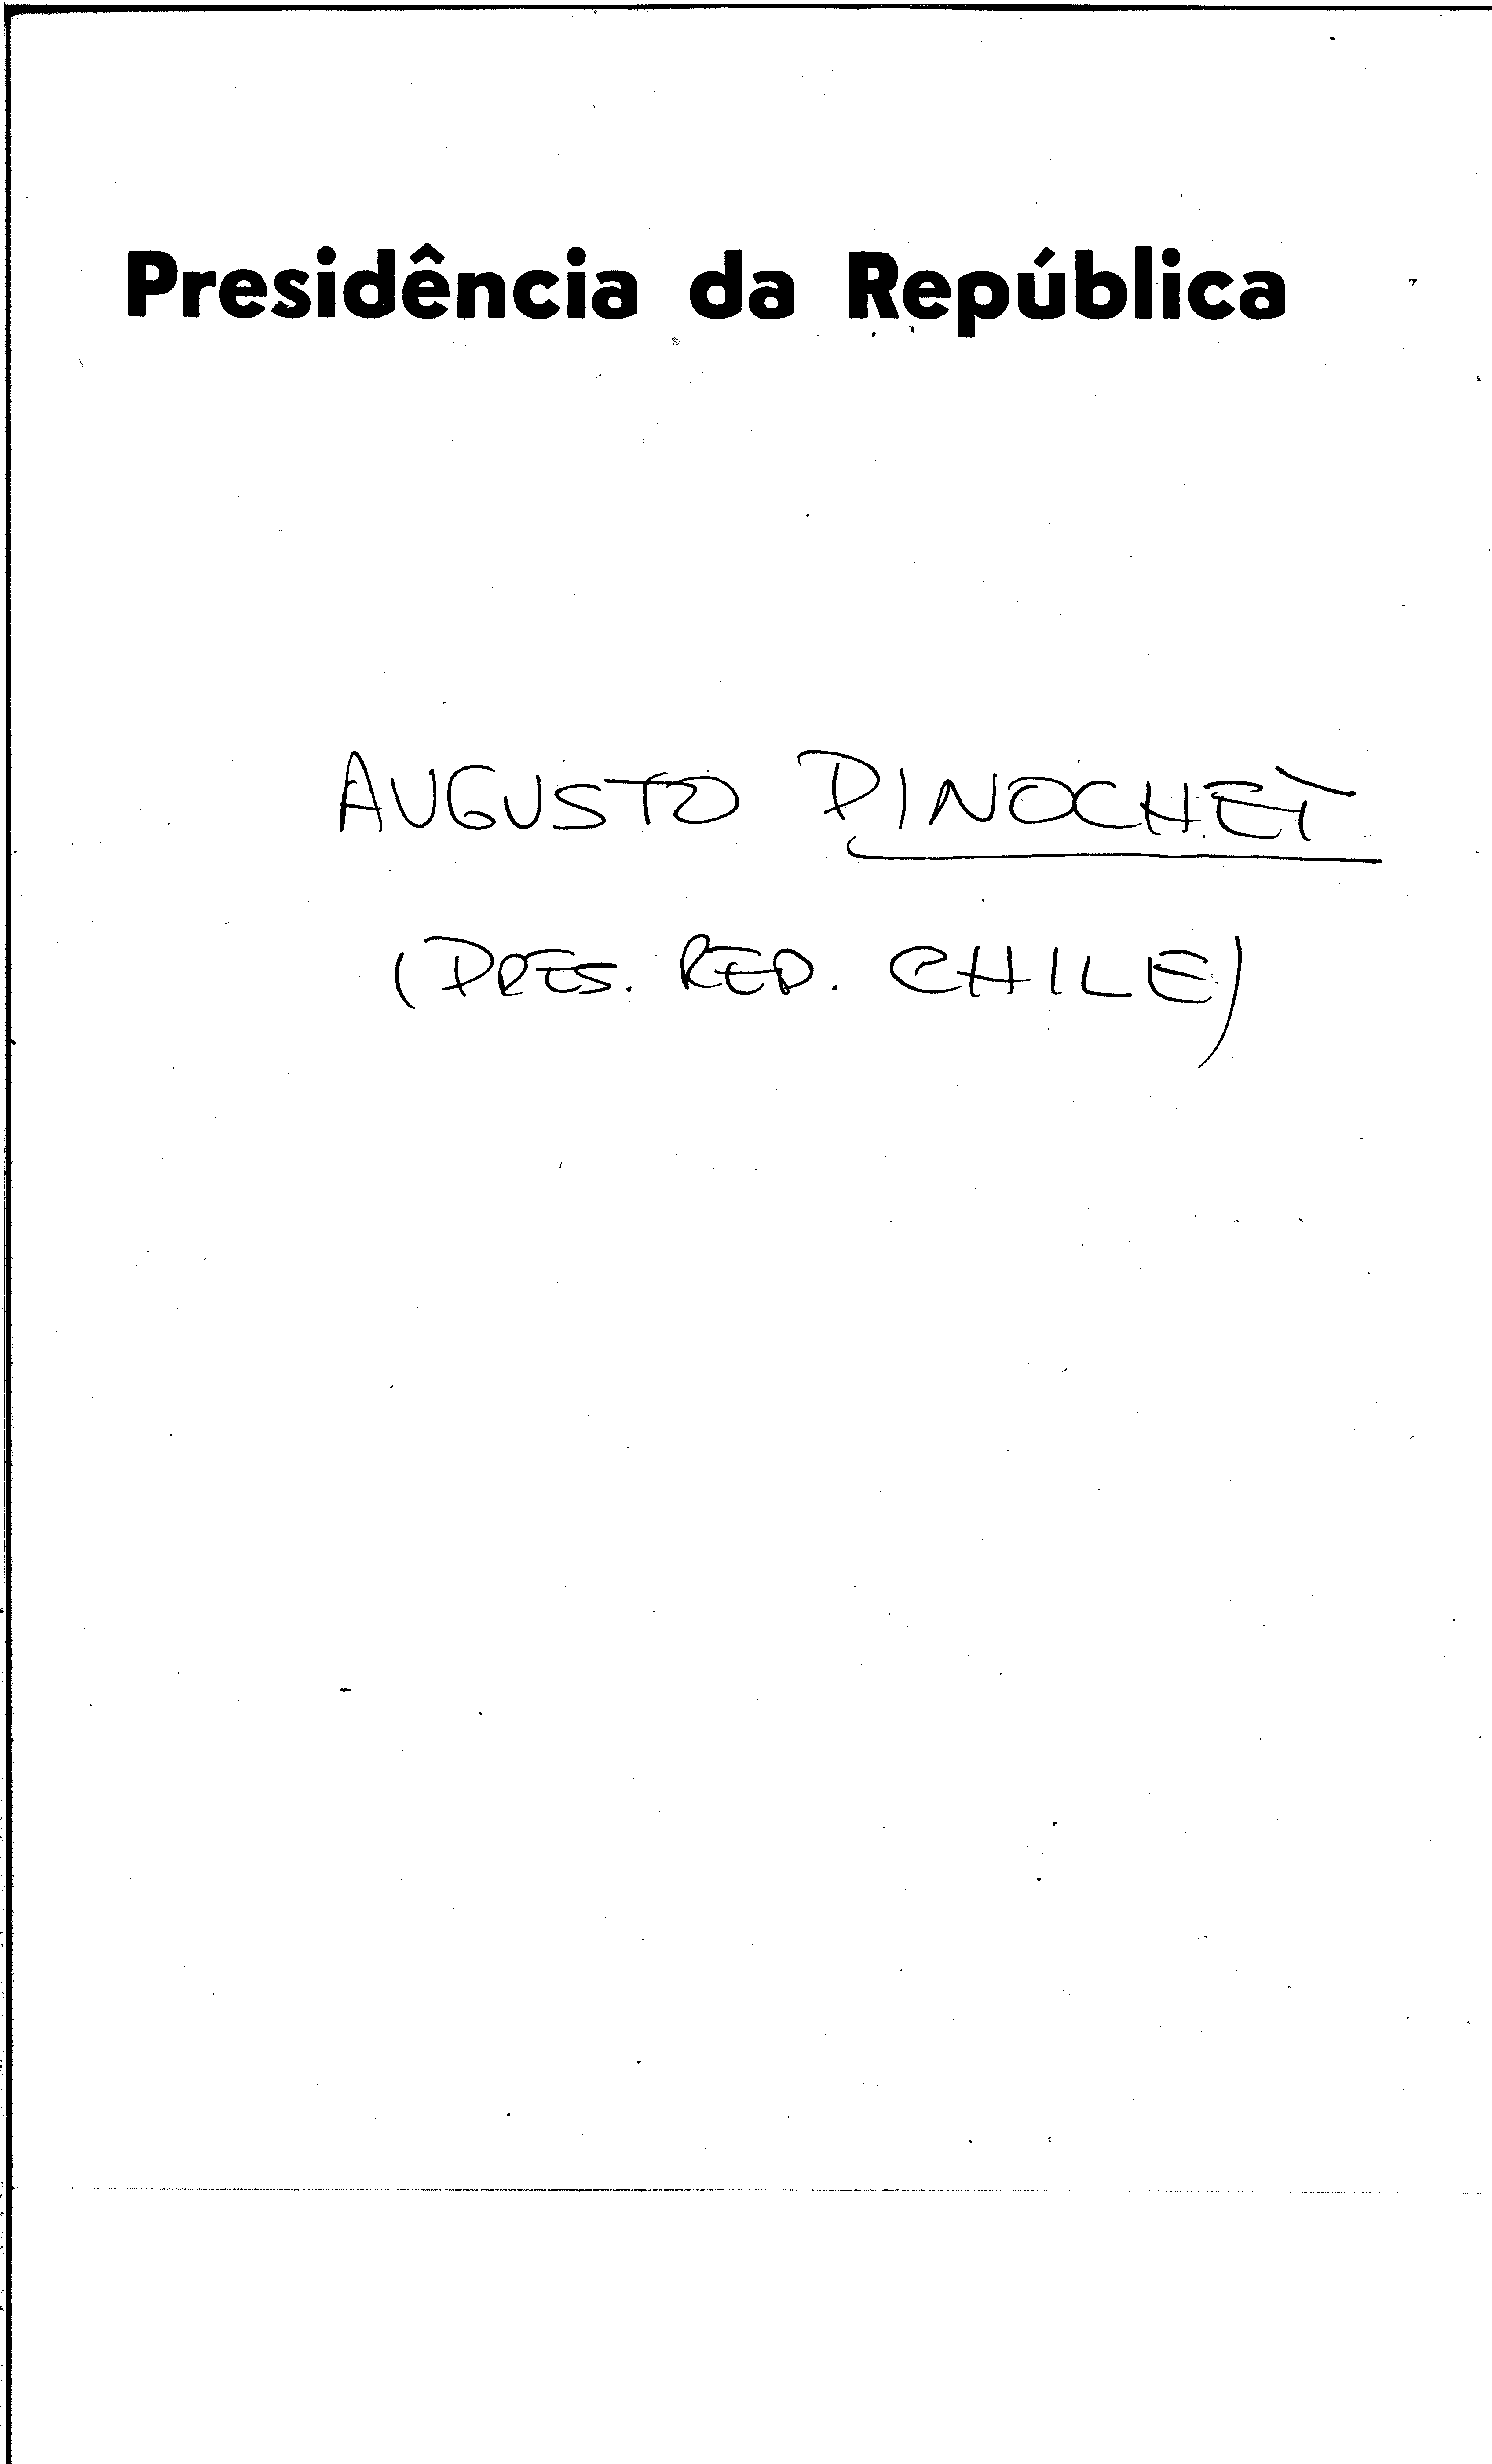 Presidência da República
AUGUSTO PINOCHET
(PRES. REP. CHILE)